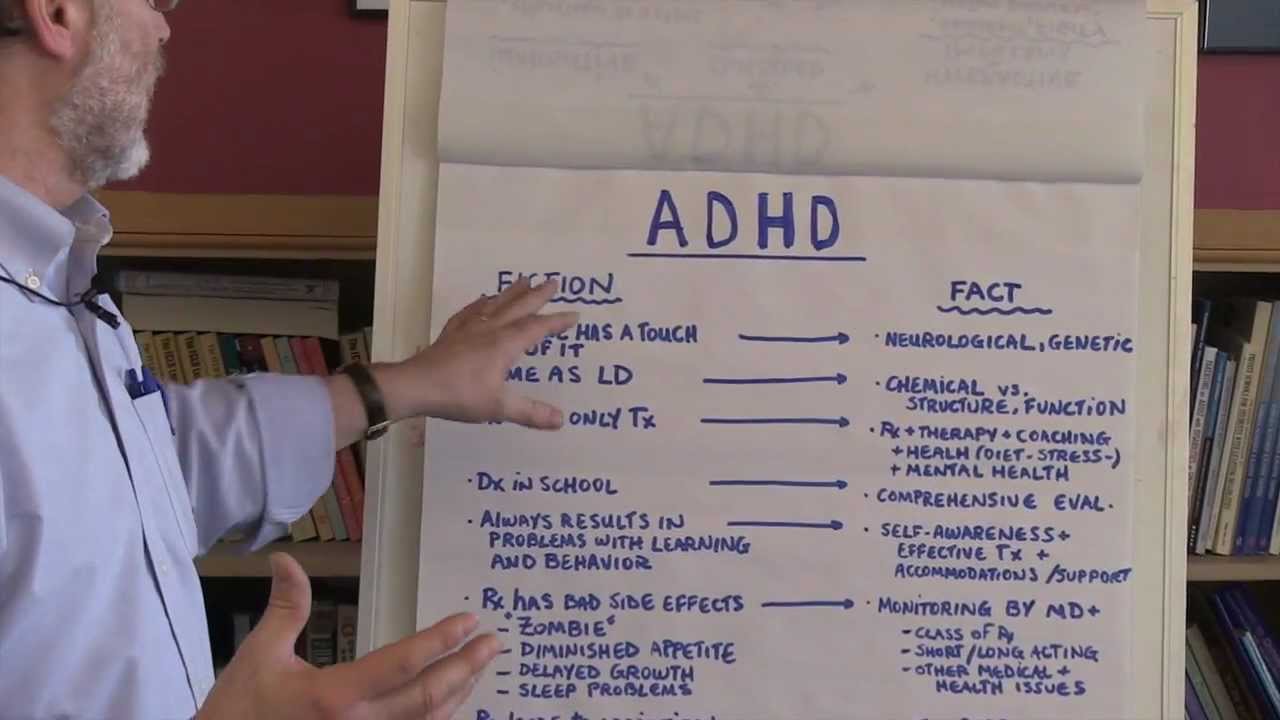 ADHD
FICTION
HAS A TOUCH
OF IT
AS LD
ONLY Tx
· Dx IN SCHOOL
· ALWAYS RESULTS IN
PROBLEMS WITH LEARNING
AND BEHAVIOR
· Rx HAS BAD SIDE EFFECTS
- "ZOMBIE"
- DIMINISHED APPETITE
- DELAYED GROWTH
- SLEEP PROBLEMS
FACT
· NEUROLOGICAL, GENETIC
· CHEMICAL vs.
STRUCTURE, FUNCTION
· Rx + THERAPY + COACHING
+ HEALH (DIET-STRESS-)
+ MENTAL HEALTH
· COMPREHENSIVE EVAL.
· SELF-AWARENESS +
EFFECTIVE Tx +
ACCOMMODATIONS/SUPPORT
· MONITORING BY MD +
- CLASS OF Rx
- SHORT/LONG ACTING
- OTHER MEDICAL +
HEALTH ISSUES